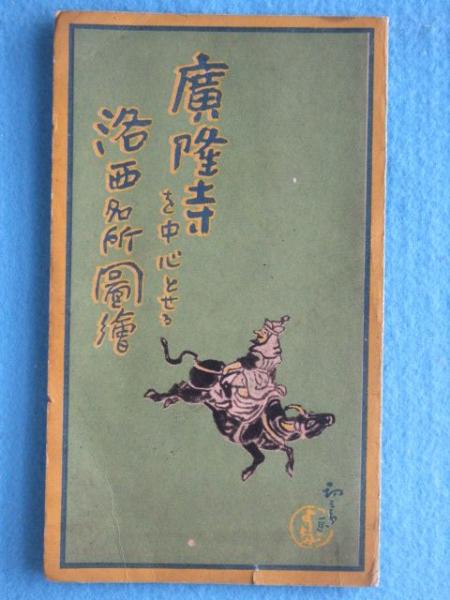 廣隆寺
を中心とせる
洛西名所圖繪
初三郎